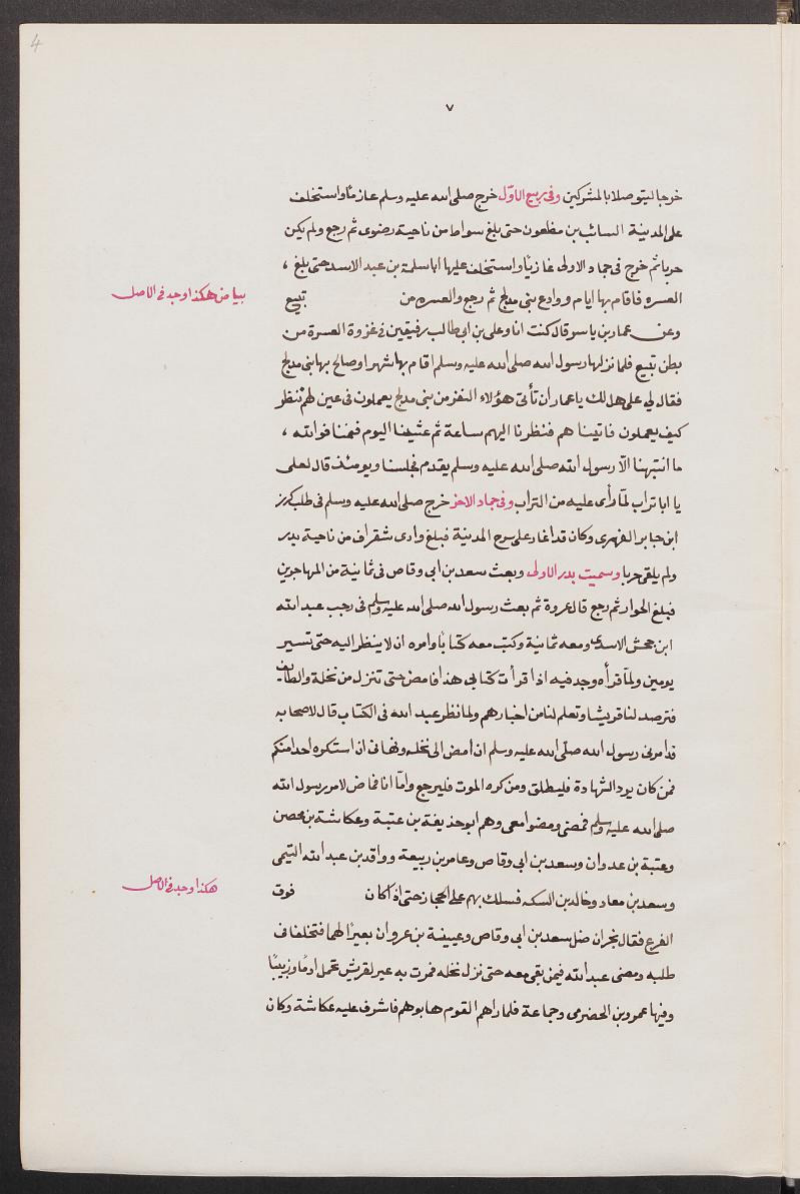 4
٧
خرجا ليتوصلا بالمشركين وفي ربيع الاوّل خرج صلى الله عليه وسلم عازمًا واستخلف
على المدينة السائب بن مظعون حتى بلغ سواط من ناحية رضوى ثم رجع ولم يكن
حربا ثم خرج في جماد الاولى غازيًا واستخلف عليها ابا سلمة بن عبد الاسد حتى بلغ ،
العسره فاقام بها ايام ووادع بني مدلج ثم رجع والعسره من تبيع
بياض هكذا وجد في الاصل
وعن عمار بن ياسر قال كنت انا وعلى بن ابي طالب رفيقين في غزوة العسرة من
بطن تبيع فلما نزلها رسول الله صلى الله عليه وسلم اقام بها شهرا وصالح بها بني مدلج
فقال لي على هل لك يا عمار ان تأتي هؤلاء النفر من بني مدلج يعملون في عين لهم ننظر
كيف يعملون فاتيناهم فنظرنا اليهم ساعة ثم غشينا اليوم فنمنا فوالله ،
ما انتبهنا الّا رسول الله صلى الله عليه وسلم يقدم فجلسنا ويومئذ قال لعلى
يا ابا تراب لمّا رأى عليه من التراب وفي جماد الاخر خرج صلى الله عليه وسلم في طلب كرز
ابن جابر الفهري وكان قد اغار على سرح المدينة فبلغ وادى شقراف من ناحية بدر
ولم يلقى حربا وسميت بدر الاولى وبعث سعد بن ابي وقاص في ثمانية من المهاجرين
فبلغ الحوار ثم رجع قال عروة ثم بعث رسول الله صلى الله عليه وسلم في رجب عبد الله
ابن جحش الاسدى ومعه ثمانية وكتب معه كتابًا وامره ان لا ينظر اليه حتى تسير
يومين ولمّا قرأه وجد فيه اذا قرأت كتابي هذا فامض حتى تنزل من نخلة والطائف
فترصد لنا قريشا وتعلم لنا من اخبارهم ولما نظر عبد الله في الكتاب قال لاصحابه
قد امرني رسول الله صلّى الله عليه وسلم ان امض الى نخله ونهاني ان استكره احدا منكم
فمن كان يود الشهادة فلينطلق ومن كره الموت فليرجع وامّا انا فماض لامر رسول الله
صلى الله عليه وسلم فمضى ومضوا معى وهم ابو حذيفة بن عتبة وعكاشة بن محصن
وعتبة بن عدوان وسعد بن ابي وقاص وعامر بن ربيعة وواقد بن عبد الله التيمى
وسعد بن معاد وخالد بن السكه فسلك بهم على الحجاز حتى اذ كان فوت
هكذا وجد في الاصل
الفرع فقال بخران ضل سعد بن ابي وقاص وعيينة بن عروان بعيرًا لهما فتخلفا في
طلبه ومضى عبد الله فيمن بقى معه حتى نزل نخله فمرت به عير لقريش تحمل ادمًا وزبيبًا
وفيها عمرو بن الحضرمى وجماعة فلما راهم القوم هابوهم فاشرف عليه عكاشة وكان